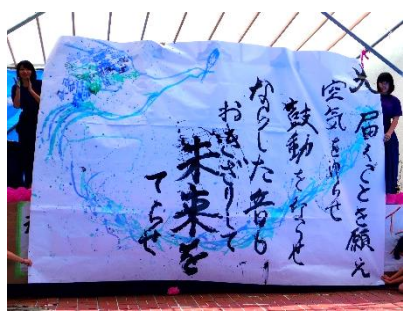 届くことを願え
空気をゆらせ
鼓動をならせ
ならした音も
おきざりにして
未来を
てらせ